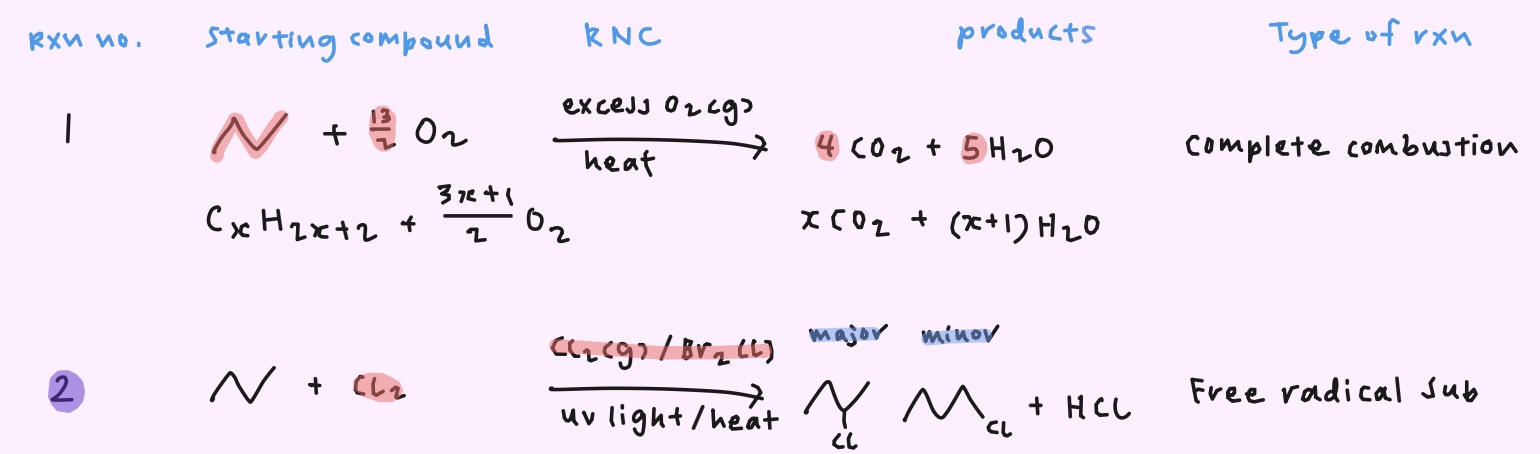 Rxn no. starting compound RNC products Type of rxn
1 + 13/2 O₂ excess O₂(g) heat 4 CO₂ + 5 H₂O complete combustion
CₓH₂ₓ₊₂ + 3x+1/2 O₂ x CO₂ + (x+1) H₂O
major minor
2 + Cl₂ Cl₂(g) / Br₂(l) uv light/heat Cl Cl + HCl Free radical sub